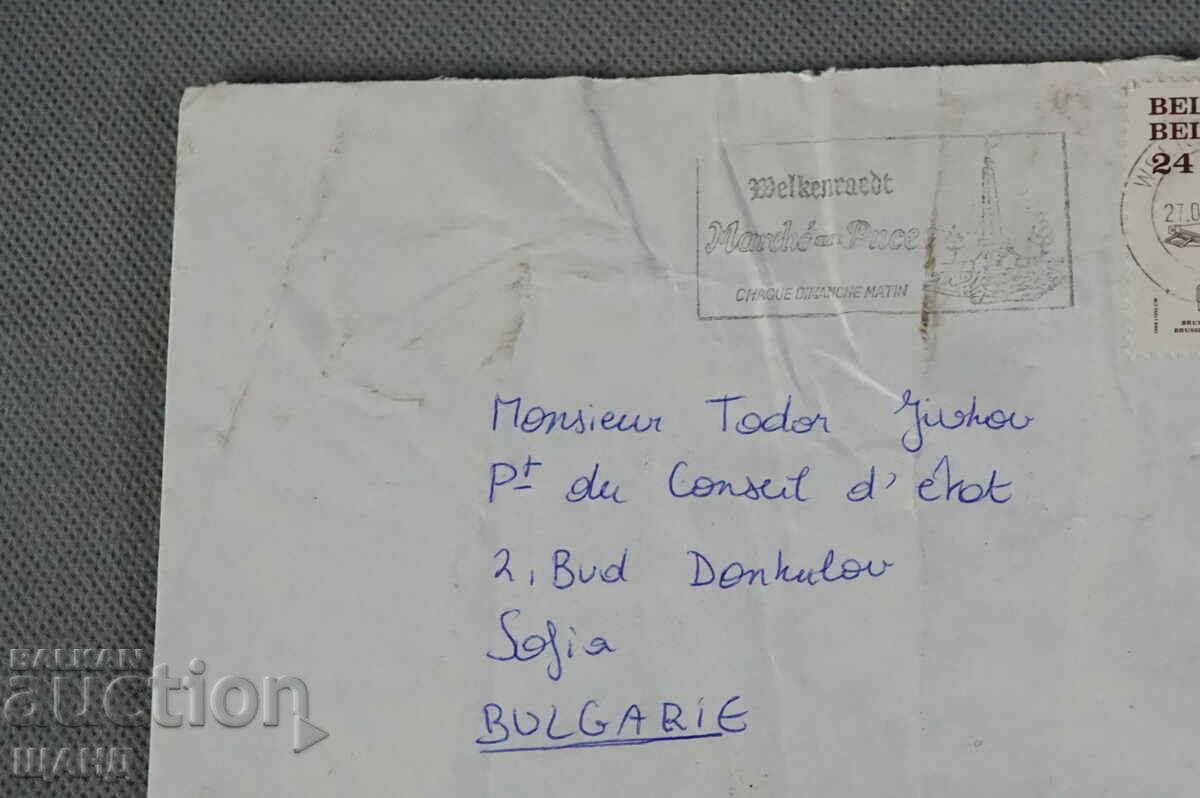 BEL
BEL
24
Welkenraedt
Marché aux Puces
CHAQUE DIMANCHE MATIN
27.0
Monsieur Todor Jivkov
Pt du Conseil d'état
2, Bvd Donkulov
Sofia
BULGARIE
BALKAN
auction
ШАНД